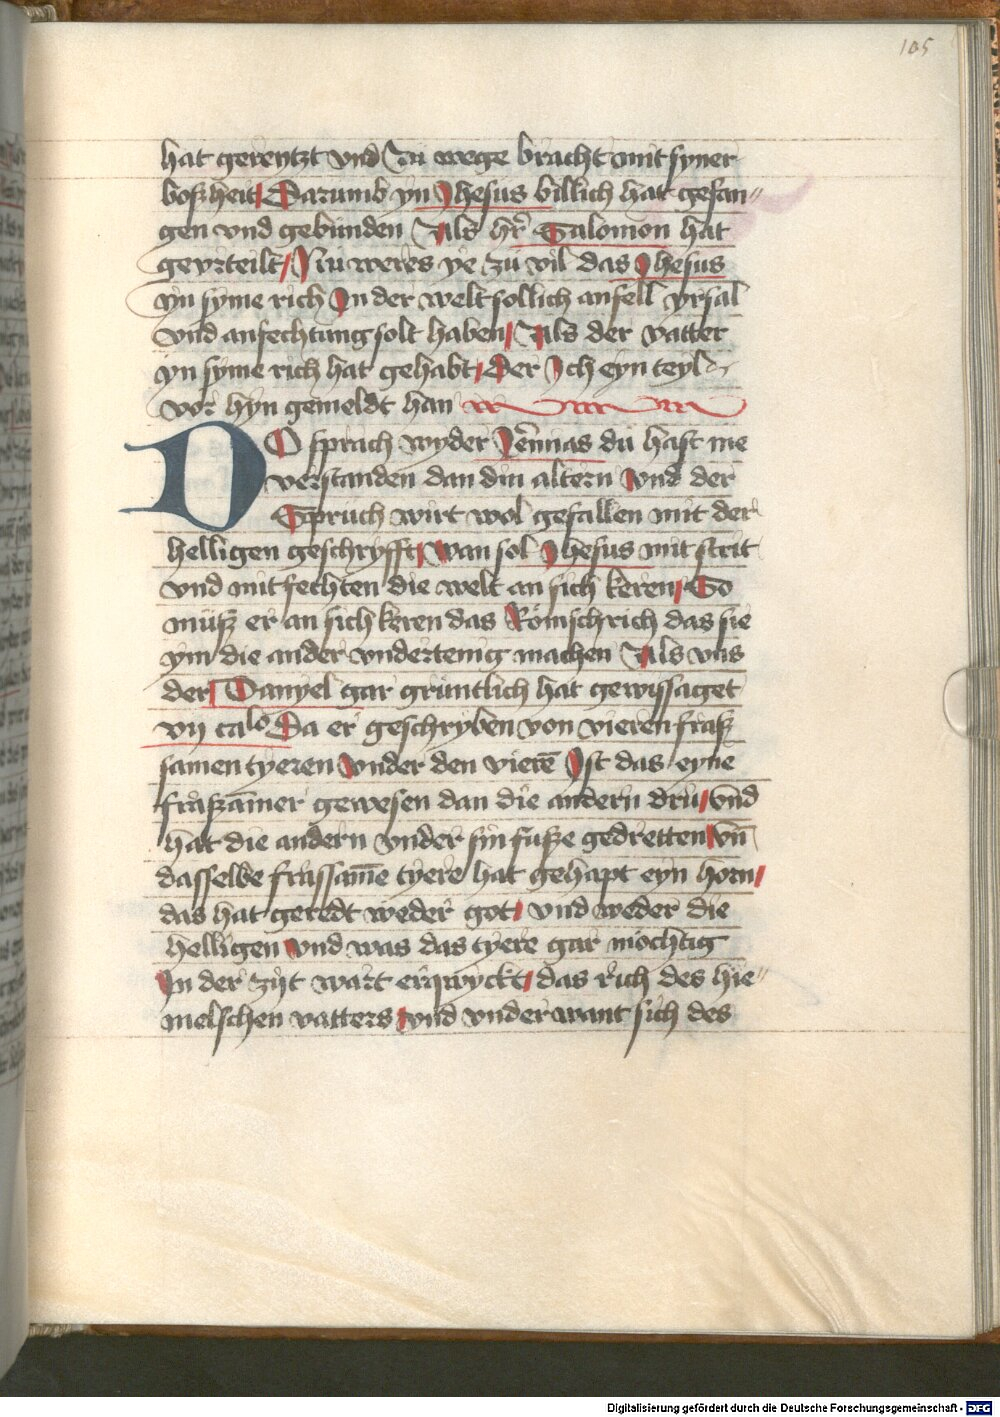 105
hat gereytzt vnd Zu wege bracht mit syner
boßheit Darumb yn Ihesus billich hat gefan〃
gen vnd gebunden Als hr̄ Salomon hat
geurteilt / Nu weres ye zu vil das Ihesus
yn syme rich In der welt sollich anfell vrsal
vnd anfechtung solt haben / Als der vatter
yn syme rich hat gehabt / Der Ich eyn teyl
vor hyn gemeldt han
DO sprach wyder Jer̄mias du hast me
verstanden dan din altern vnd der
Spruch wirt wol gefallen mit der
helligen geschryfft / wan sol Ihesus mit strit
vnd mit fechten die welt an sich keren / So
müß er an sich keren das Römsch rich das sie
ym die ander vndertenig machen Als vns
der Danyel gar gruntlich hat gewyssaget
vij ca⁰ Da er geschryben von vieren fraß
samen tyeren vnder den vierē Ist das eyne
fraßāmer gewesen dan die andern dru / vnd
hat die andern vnder sin fuße gedretten vn̄
dasselbe frassam̄e tyere hat gehapt eyn horn /
das hat geredt weder got / vnd weder die
helligen vnd was das tyere gar mochtig
In der zyt wart erqwyckt / das rich des hie〃
melschen vatters / vnd vnderwant sich des
Digitalisierung gefördert durch die Deutsche Forschungsgemeinschaft - DFG